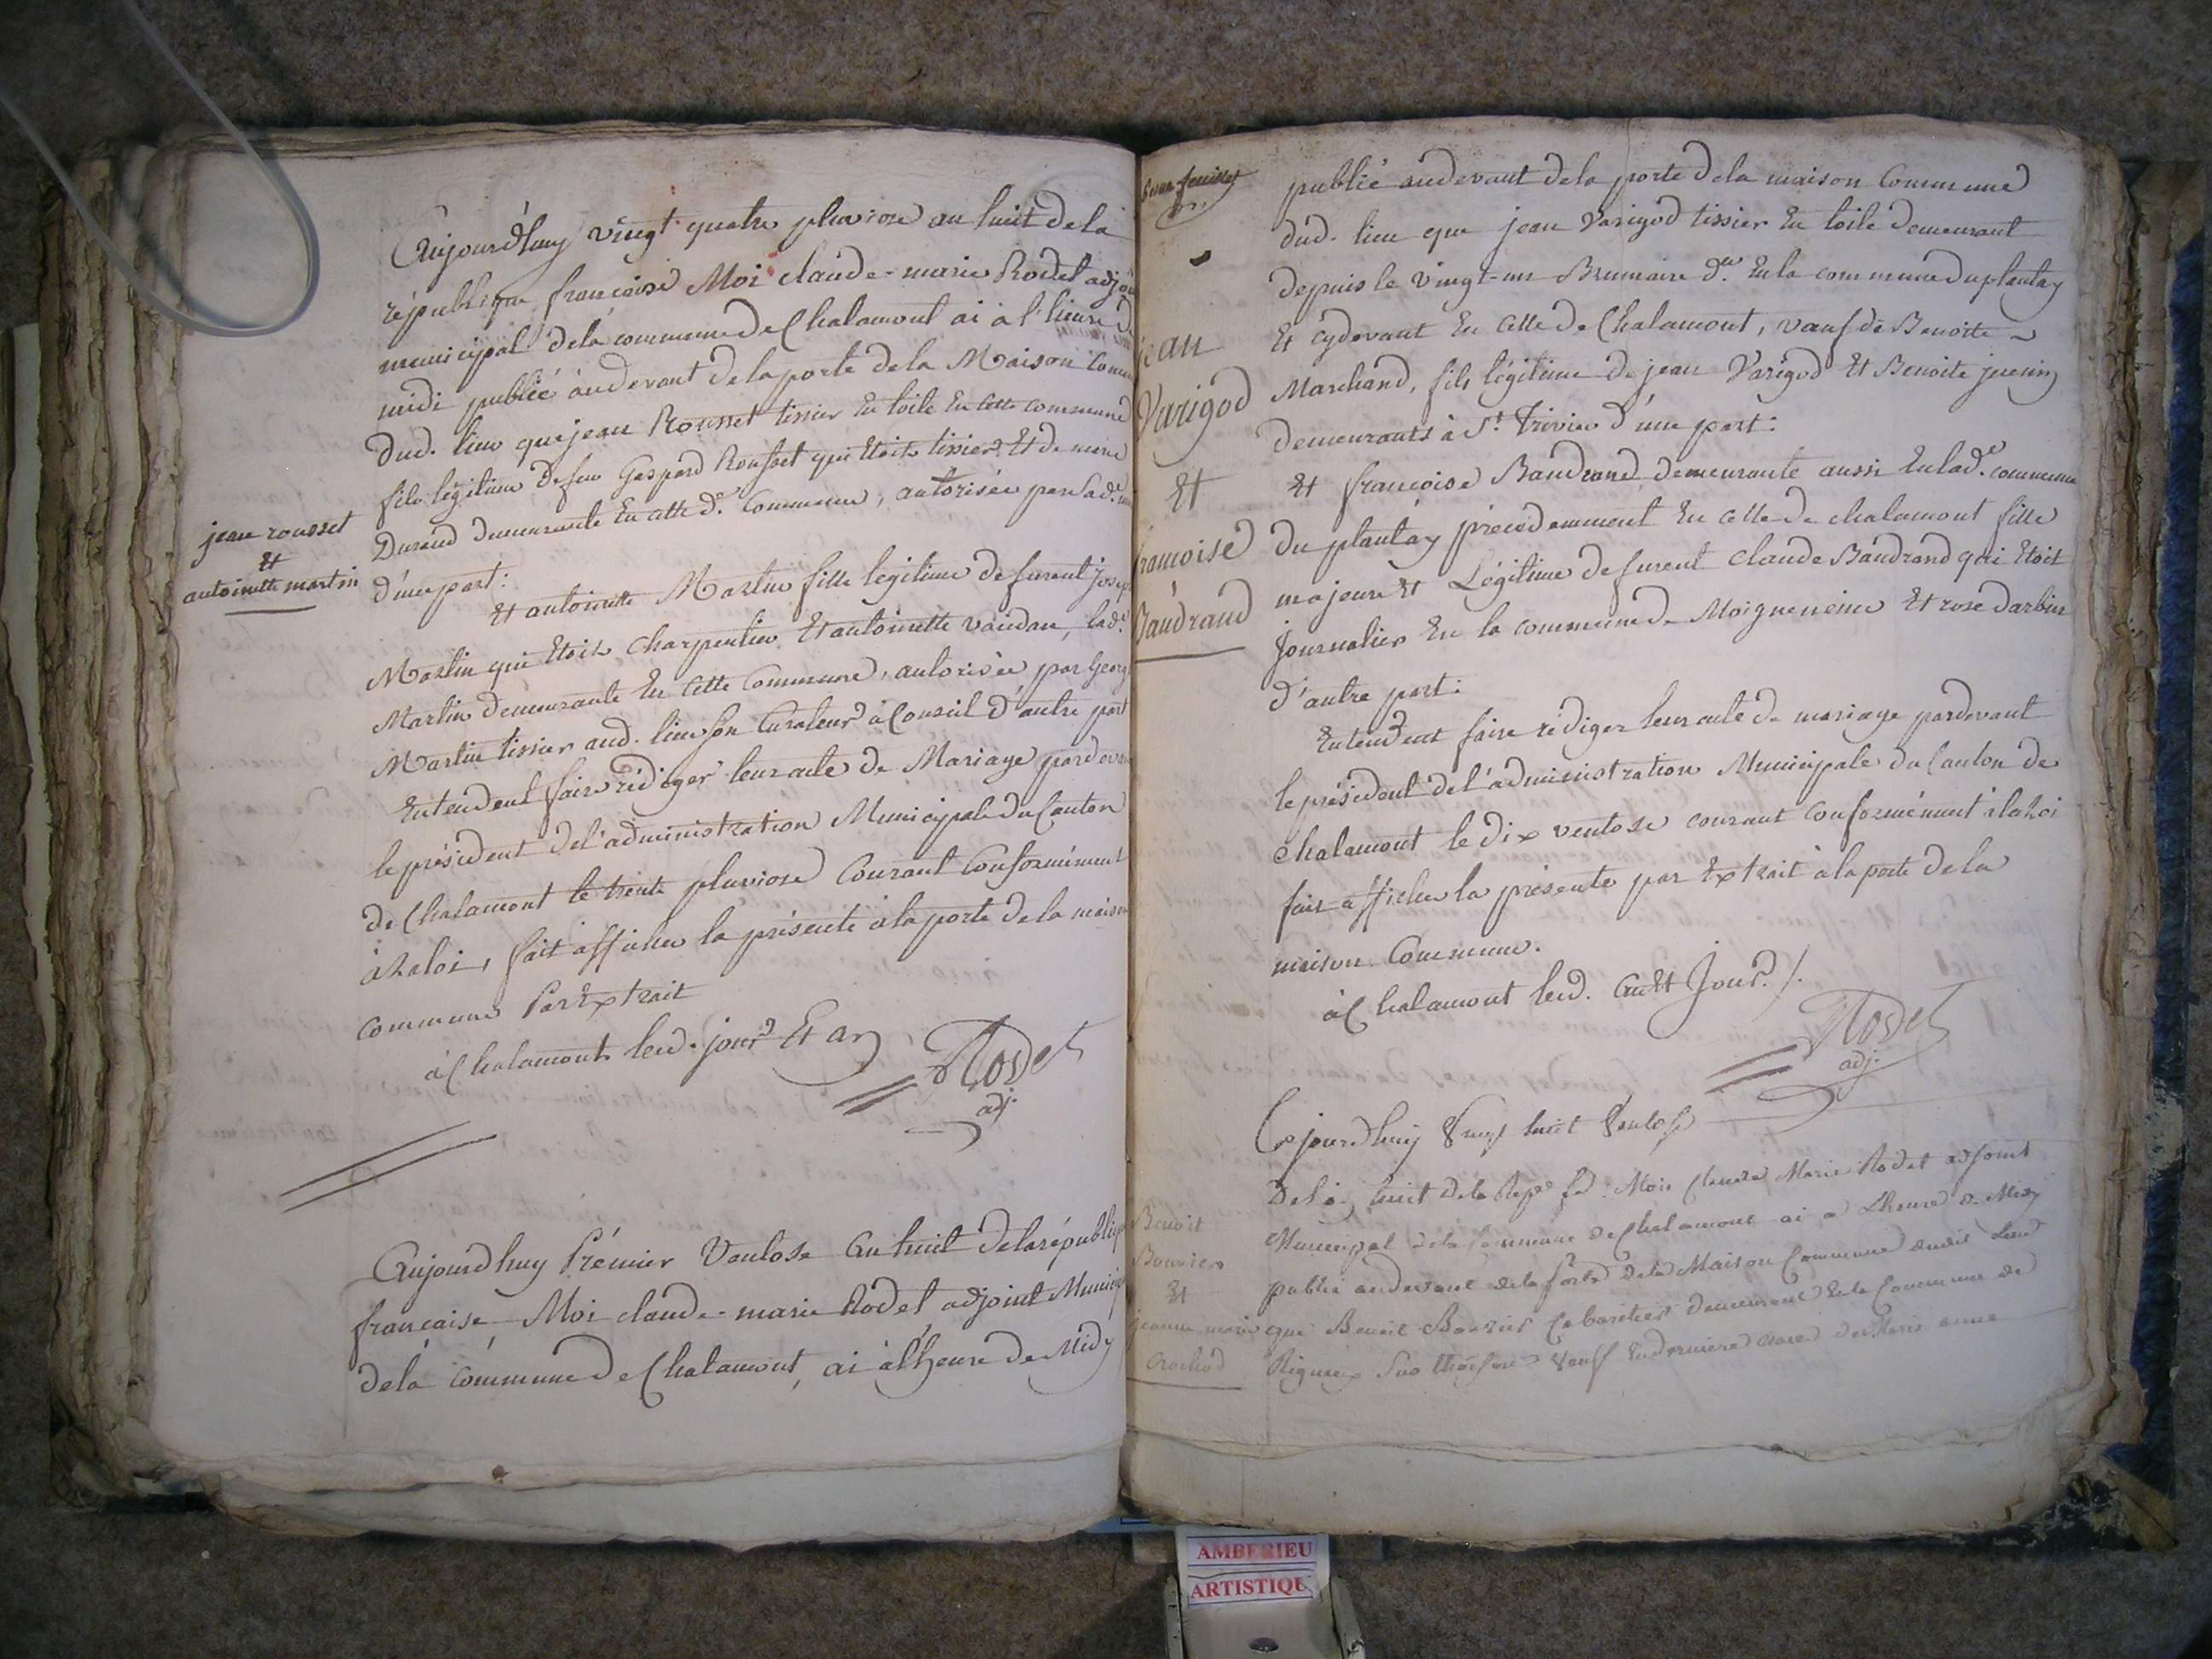 jean rousset
Et
antoinette martin
Aujourd'huy vingt quatre pluviose an huit de la
république francaise Moi claude-marie Rodet adjoi
municipal de la commune de Chalamont ai à l'heure de
midi publié audevant de la porte de la Maison Comm
dud. lieu que jean Rousset tissier En toile En cette commune
fils légitime de feu Gaspard Rousset qui Etoit tissier Et de marie
Durand demeurante En cette d.e Commune, autorisée par Sad.e
d'une part:
Et antoinette Martin fille légitime de furent Josep
Martin qui Etoit Charpentier Et antoinette vaudan, lad.e
Martin demeurante En cette Commune, autorisée par Georg
Martin tissier aud. lieu son Curateur à Conseil d'autre part
Entendent faire rédiger leur acte de Mariage pardevan
le président de l'administration Municipale du Canton
de Chalamont le trente pluviose Courant Conformément
à la loi, fait afficher la présente à la porte de la maison
commune Par Extrait
à Chalamont led. jour Et an
Rodet
adj.
Aujourdhuy Prémier Ventose an huit de la républiq
francaise Moi claude-marie Rodet adjoint Munici
de la commune de Chalamont, ai à l'heure de Midy
feuillet
jean
Varigod
Et
francoise
Baudrand
publié audevant de la porte de la maison Commune
dud. lieu que jean Varigod tissier En toile demeurant
depuis le vingt-un Brumaire d.er En la commune du plantay
Et cydevant En Celle de Chalamont, vauf de Benoite
Marchand, fils légitime de jean Varigod Et Benoite juenin
demeurants à S.t Trivier d'une part:
Et francoise Baudrand demeurante aussi En lad.e commune
du plantay précédemment En Celle de chalamont fille
majeure Et Légitime de furent Claude Baudrand qui Etoit
Journalier En la commune de Moigneneins Et rose darbin
d'autre part:
Entendent faire rédiger leur acte de mariage pardevant
le président de l'administration Municipale du Canton de
Chalamont le dix ventose courant Conformément à la Loi
fait afficher la présente par Extrait à la porte de la
maison Commune.
à Chalamont led. an Et Jour ./.
Rodet
adj.
Benoit
Bouvier
Et
jeanne marie
Crochod
Cejourdhuy vingt huit ventose
De l'an huit de la Rep.e f.e Moi Claude Marie Rodet adjoint
Municipal de la Commune de Chalamont ai a Lheure de Midy
publié audevant de la porte de la Maison Commune dudit Lieu
que Benoit Bouvier Cabaretier demeurant En la Commune de
Rigneux veuf En derniere de Marie anne